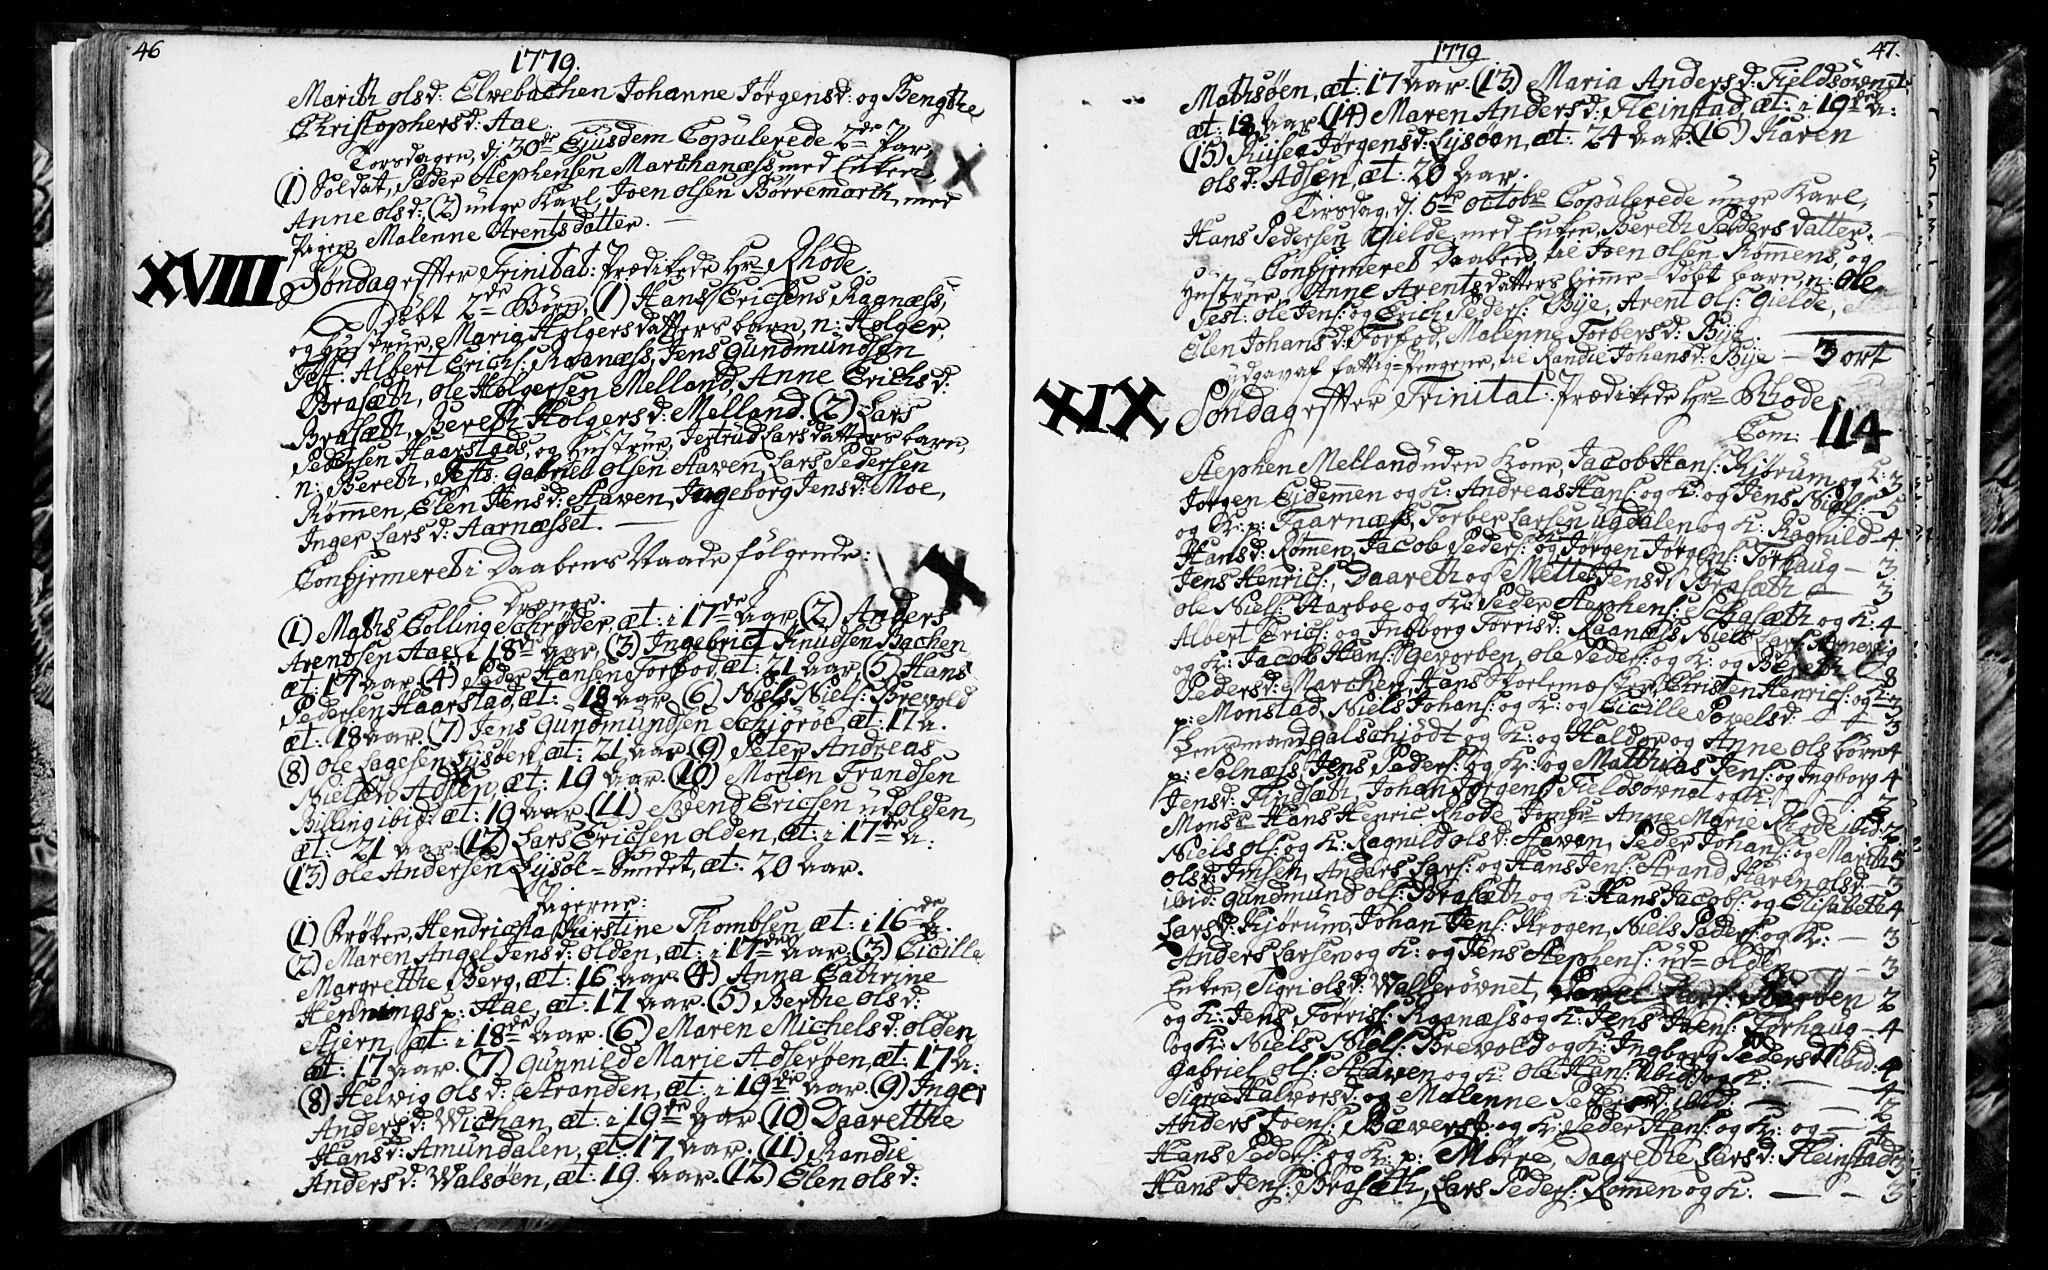 46
1779.
Marith olsd: Elvebachen Johanne Jørgensd: og Bengthe
Christophersd: Aae.
Torsdagen, dj 30de Ejusdem Copulerede 2de Par,
(1) Soldat, Peder Stephensen Marchanæss, med Enken
Anne olsd: (2) unge Karl, Joen olsen Børremarch, med
Pigen, Malenne Arentsdatter.
XVIII Søndag efter Trinitat: Prædikede Hr Rhode.
Døbt 2de Børn, (1) Hans Ericsens Raanæss,
og Hustrue, Maria Holgersdatters barn, n: Holger,
Test: Albert Erichs: Raanæss, Jens Gundmundsen
Brasæth, ole Holgersen Melland, Anne Erichsd:
Brasæth, Bereth Holgersd: Melland. (2) Lars
Pedersen Haarstads, og Hustrue, Jertrud Larsdatters barn,
n: Bereth, Test: Gabriel olsen Staven, Lars Pedersen
Rømmen, Elen Jensd: Staven, Ingeborg Jensd: Moe,
Inger Larsd: Aarnæsset.
Confirmeret i Daabens Naade følgende:
Drenge.
(1) Maths Collinge Schrøder, æt: i 17de aar, (2) Anders
Arentsen Aae, i 18de aar, (3) Ingebrict Knudsen Bachen
æt: 17 aar (4) Peder Hansen Forbod, æt: 21 aar, (5) Hans
Pedersen Haarstad, æt: 18 aar (6) Niels Niels: Brevold
æt: 18 aar. (7) Jens Gundmundsen Schjørøe, æt: 17 a.
(8) ole Lagesen Lysøen, æt: 21 aar (9) Peter Andreas
Nielsen Adsen, æt: 19 aar. (10) Morten Frandsen
Billing ibid: æt: 19 aar. (11) Svend Ericsen udolden,
æt: 21 aar. (12) Lars Ericsen olden, æt: i 17de a:
(13) ole Andersen Lysøe=Sundet, æt: 20 aar.
Pigerne:
(1) Hendricha Kirstine Thombsen, æt: i 16de a.
(2) Maren Angel Jensd: olden, æt: i 17de aar. (3) Cicille
Margrethe Berg, æt: 16 aar. (4) Anna Cathrine
Hennings p: Aae, æt: 17 aar. (5) Berthe olsd:
Stjern, æt: i 18de aar. (6) Maren Michelsd: olden
æt: 17 aar. (7) Gunnild Marie Adserøen, æt: 17 a:
(8) Helvig olsd: Stranden, æt: i 19de aar. (9) Inger
Andersd: Wichan, æt: i 19de aar (10) Daarethe
Hansd: Amundalen, æt: 17 aar. (11) Randie
Andersd: Walsøen, æt: 19 aar. (12) Elen olsd:
47.
1779
Mathsøen, æt: 17 aar. (13) Maria Andersd: Fieldsøvnet
æt: 18 aar (14) Maren Andersd: Fleinstad, æt: i 19de a:
(15) Jørgensd: Lysøen, æt: 24 aar. (16) Karen
olsd: Adsen, æt: 20 aar.
Tirsdag, dj 5te octobr Copulerede unge Karl,
Hans Pedersen Gielde, med Enken, Bereth Pedersdatter.
Confirmeret Daaben, til Joen olsen Rømmens, og
Hustrue, Anne Arentsdatters hiemme=døbt barn, n: ole
Test: ole Jens: og Erich Peders: Bye, Arent ols: Gielde,
Elen Johansd: Forbod, Malenne Torbersd: Bye.
udgav af Fattig=Pengene, til Randie Johansd: Bye — 3 ort
XIX Søndag efter Trinitat: Prædikede Hr Rhode
Com: 114
Stephen Melland uden Kone, Jacob Hans: Kjørum, og K: 3
Jørgen Eidemmen og K: Andreas Hans: og K: og Jens Niels: 5
og K: p: Tjarnæss, Torber Larsen ugdalen og K: Ragnild 4
Hansd: Rømmen, Jacob Peders: og Jørgen Jørgens: Torhaug — 3
Jens Henrics:, Daareth og Mette Jensd: Brasæth — 3
ole Niels: Harboe og K: Peder Stephens: Schasæth og K: 4
Albert Erics: og Ingborg Torrisd: Raanæss, Niels
og K: Jacob Hans: Gevorben, ole Peders: og K: og Bereth
Pedersd: Marchen, Hans Skolemæster, Christen Henrics: og K: 8
p: Monstad, Niels Johans: og K: og Cicille Povelsd: — 3
Lensmand Galschjødt og K: og Haldor og Anne ols børn 4
p: Selnæss, Jens Peders: og K: og Matthias Jens: og Ingborg 4
Jensd: Findsæth, Johan Jørgens: Fieldsøvnet og K:
Monsr Hans Henric Rhode Jomfr Anne Marie Rhode ibid: 2
Niels ols: og K: Ragnild olsd: Staven, Peder Johans: og Marith 5
olsd: Imsen, Anders Lars: og Hans Jens: Strand, Karen olsd: 3
ibid: Gundmund ols: Brasæth og K: Hans Jacobs: og Elisabeth 4
Larsd: Kjørum, Johan Jens: Krogen, Niels Peders: og K: — 3
Anders Larsen og K: og Jens Stephens: ud=olde — 3
Enken, Sigri olsd: Wallersøvnet, 2
og K: Jens Torris: Raanæss og K: Jens Joens: Torhaug 4
og K: Niels Niels: Brevold og K: Ingborg Pedersd: ibid:
Gabriel ols: Staven og K: ole Hans: ibid: og K: 4
Sigrie Halvorsd: og Malenne Pedersd: ibid — 2
Anders Joens: Bæverst: og K: Peder Hans: og K: og — 4
Hans Peders: og K: p: Mørre, Daarethe Larsd: Fleinstad
Hans Jens: Brasæth, Lars Peders: Rømmen og K: — 3